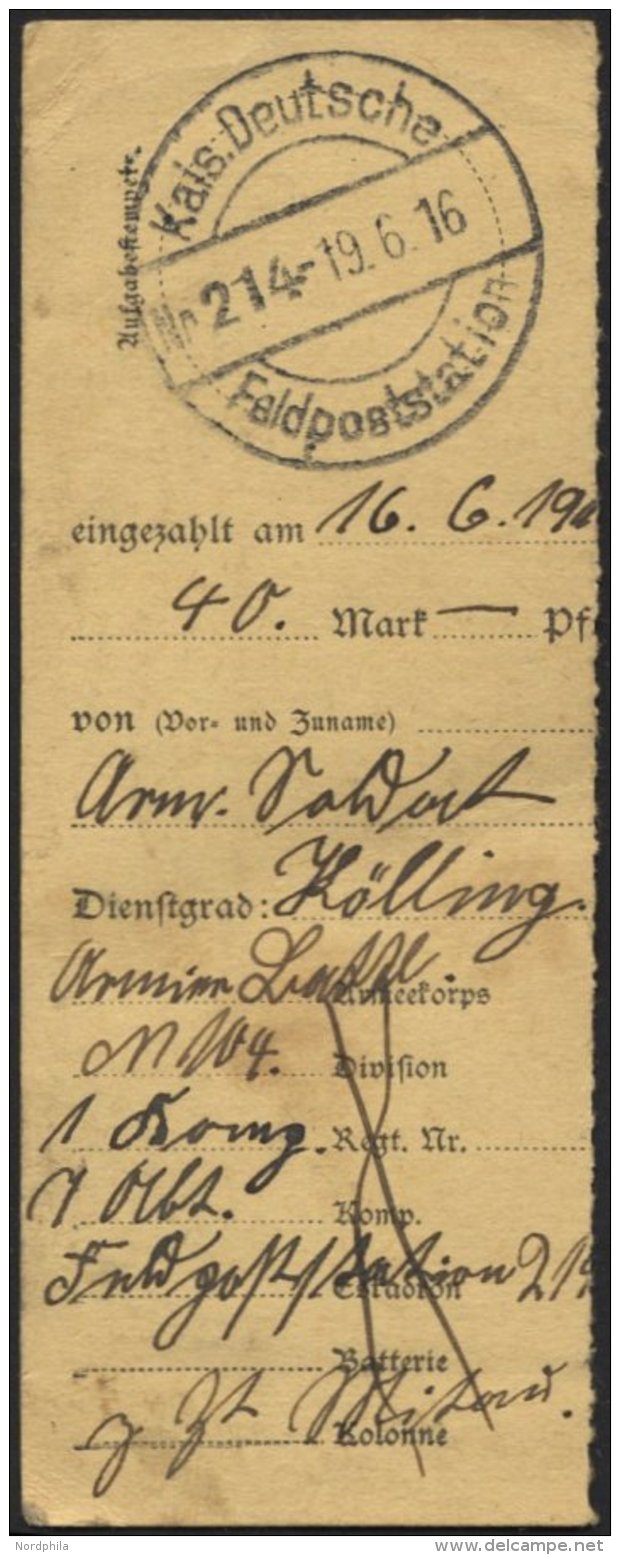 Kais. Deutsche
Nr 214 - 19. 6. 16
Feldpoststation
Aufgabestempel.
eingezahlt am 16. 6. 19
40. Mark — Pf
von (Vor- und Zuname)
Arm. Soldat
Dienstgrad: Kölling.
Armier Batl. Armeekorps
N 104. Division
1 Komp. Regt. Nr.
7 Abt. Komp.
Feldpoststation 21 Eskadron
Batterie
z Zt Mitau. Kolonne
Nordphila
www.delcampe.net